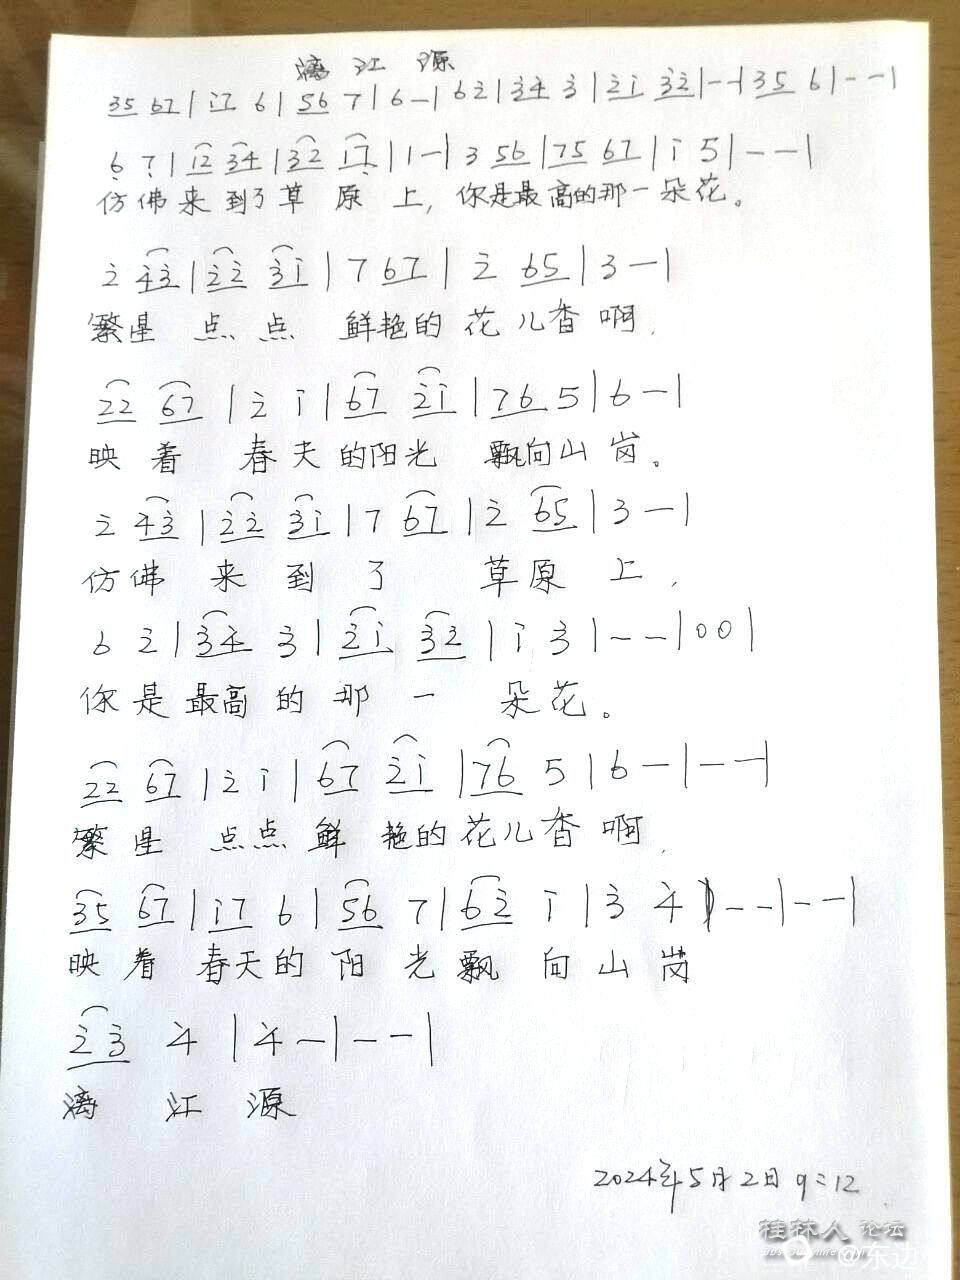 漓江源
35 67 | i7 6 | 56 7 | 6 — | 6 2 | 34 3 | 2i 32 | — — | 35 6 | — — |
6 7 | 12 34 | 32 17 | 1 — | 3 56 | 75 67 | i 5 | — — |
仿佛来到了草原上，你是最高的那一朵花。
2 43 | 22 3i | 7 67 | 2 65 | 3 — |
繁星点点鲜艳的花儿香啊，
22 67 | 2 i | 67 2i | 76 5 | 6 — |
映着春天的阳光飘向山岗。
2 43 | 22 3i | 7 67 | 2 65 | 3 — |
仿佛来到了草原上，
6 2 | 34 3 | 2i 32 | i 3 | — — | 0 0 |
你是最高的那一朵花。
22 67 | 2 i | 67 2i | 76 5 | 6 — | — — |
繁星点点鲜艳的花儿香啊，
35 67 | i7 6 | 56 7 | 62 i | 3 4 | — — | — — |
映着春天的阳光飘向山岗
23 4 | 4 — | — — |
漓江源
2024年5月2日 9:12
桂林人论坛
@东边